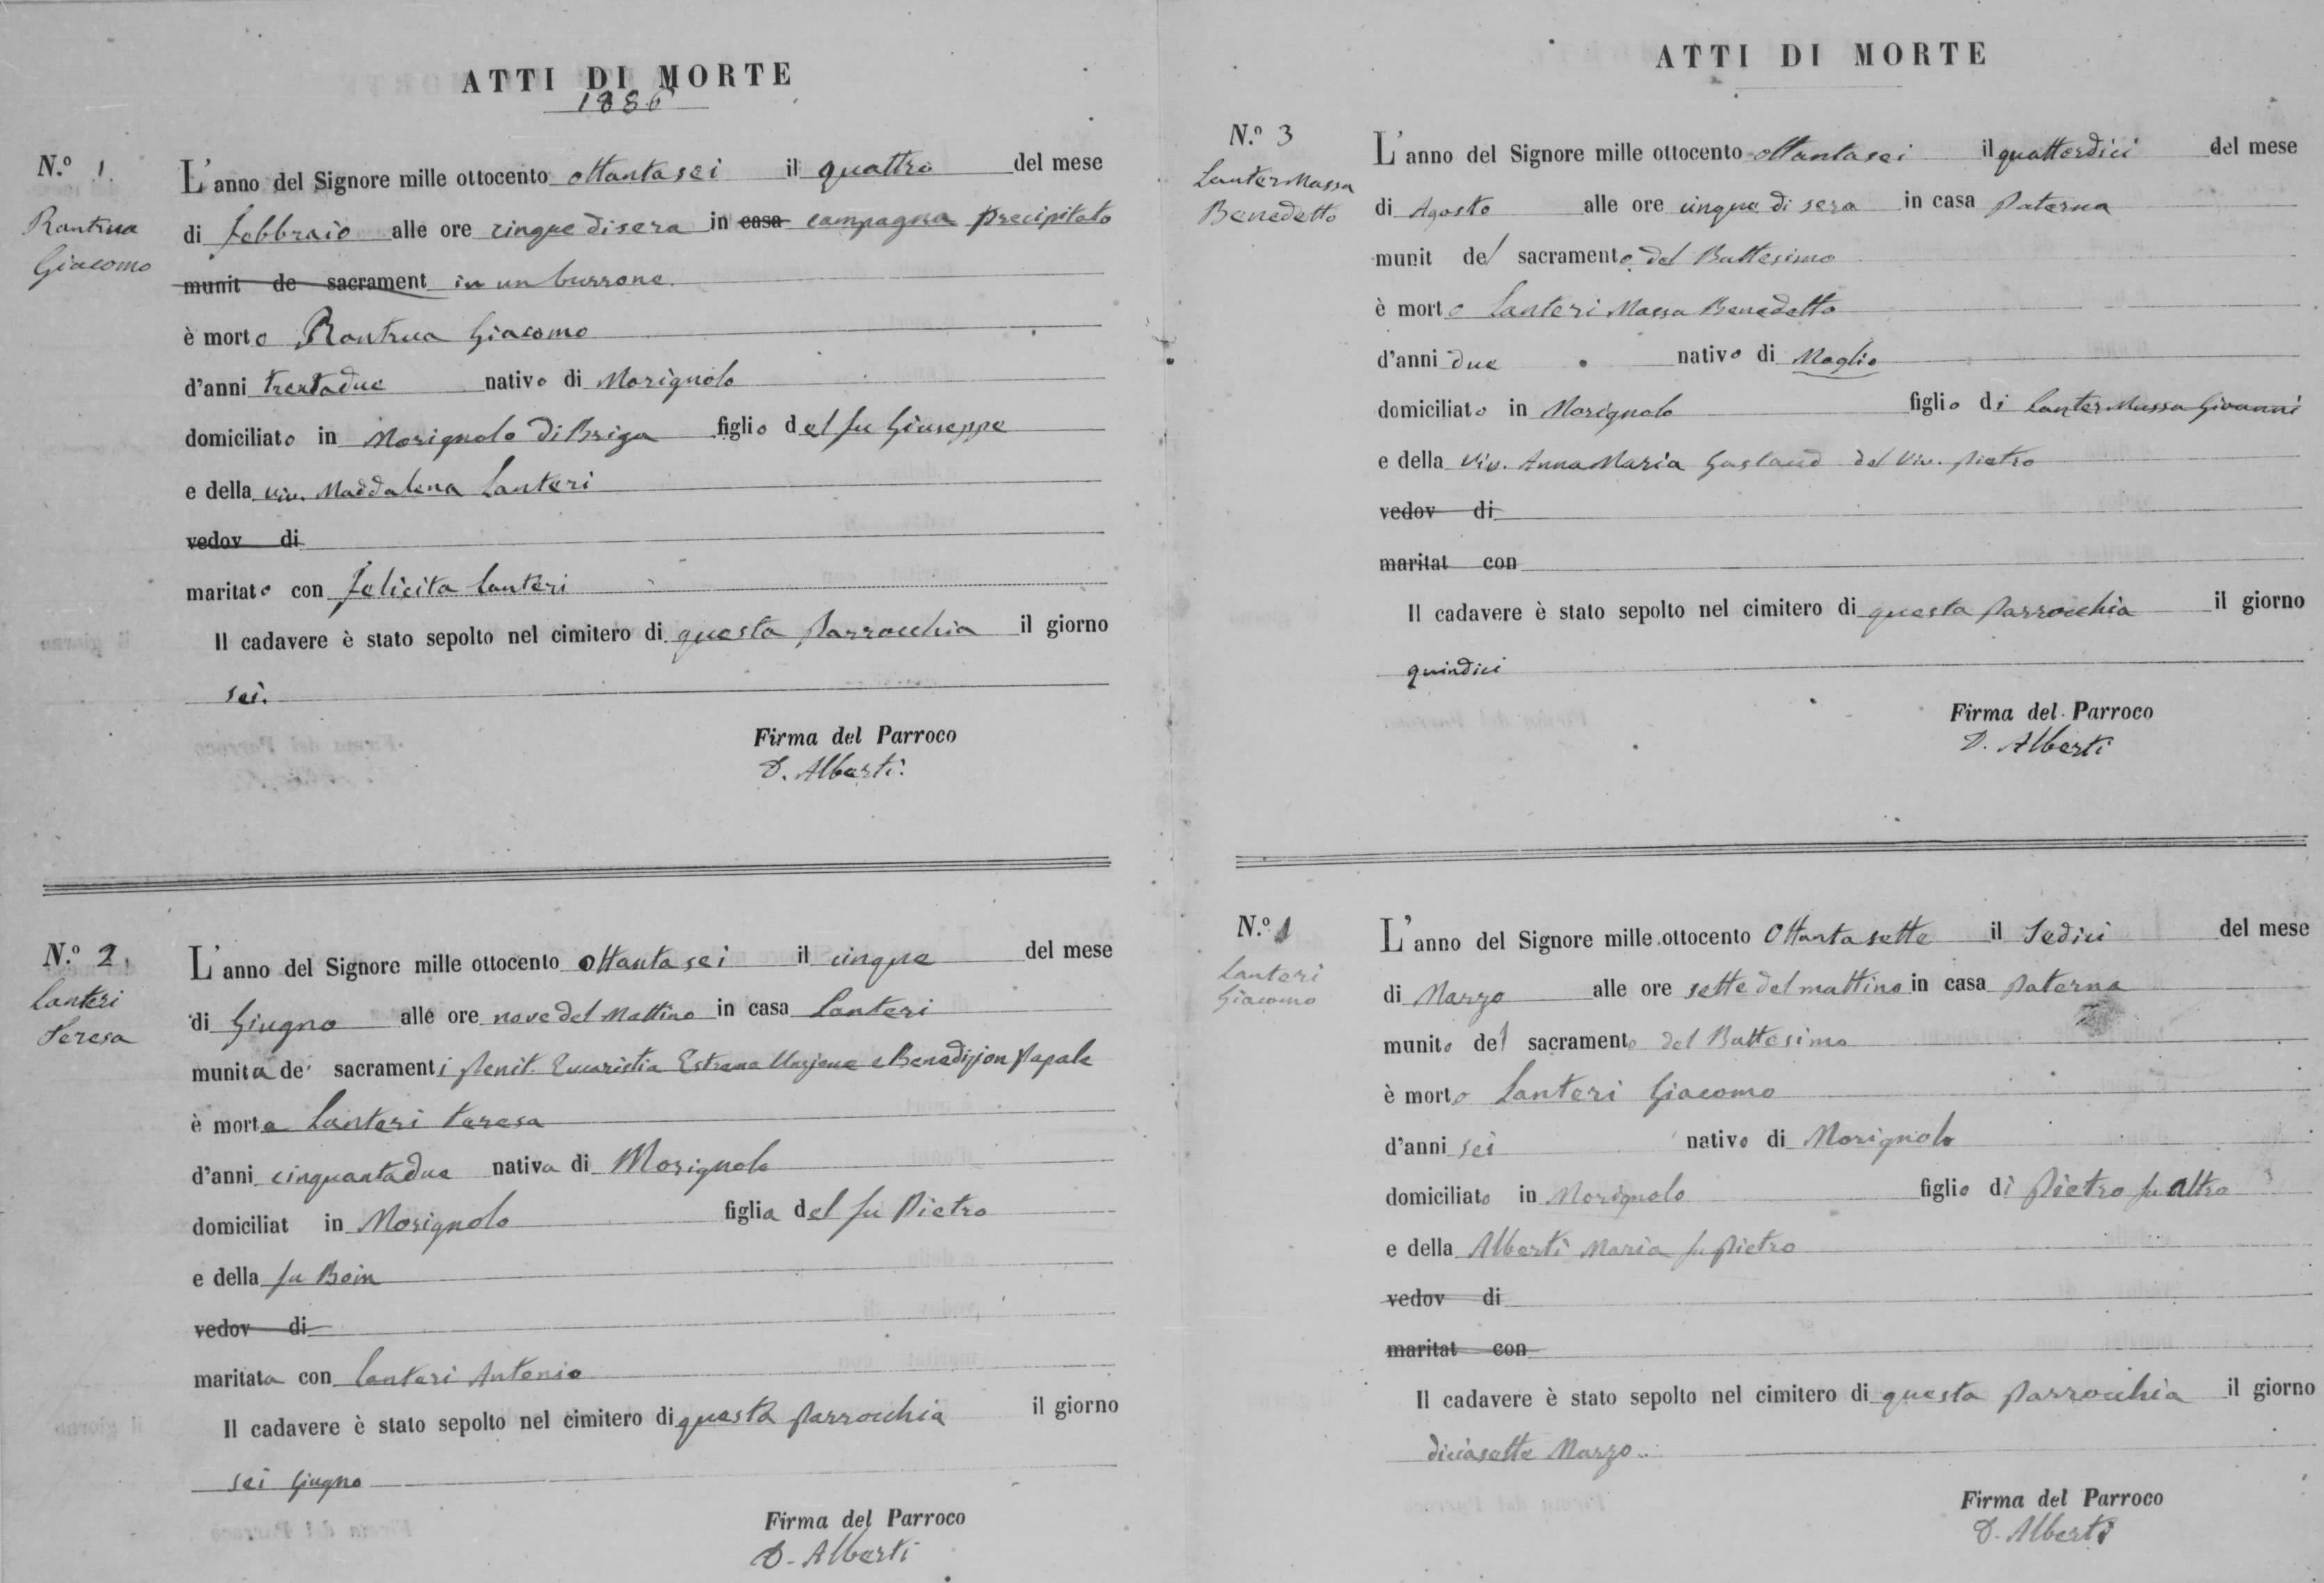 ATTI DI MORTE
1886
N.º 1.
Rantrua
Giacomo
L'anno del Signore mille ottocento ottantasei il quattro del mese
di febbraio alle ore cinque di sera in casa campagna precipitato
munit de sacrament in un burrone.
è morto Rantrua Giacomo
d'anni trentadue nativo di Morignolo
domiciliato in Morignolo di Briga figlio del fu Giuseppe
e della viv. Maddalena Lanteri
vedov di
maritato con Felicita Lanteri
Il cadavere è stato sepolto nel cimitero di questa Parrocchia il giorno
sei.
Firma del Parroco
D. Alberti.
N.º 2.
Lanteri
Teresa
L'anno del Signore mille ottocento ottantasei il cinque del mese
di Giugno alle ore nove del Mattino in casa Lanteri
munita de' sacramenti Penit. Eucaristia Estrema Unzione e Benedizion Papale
è morta Lanteri Teresa
d'anni cinquantadue nativa di Morignolo
domiciliat in Morignolo figlia del fu Pietro
e della fu Boin
vedov di
maritata con Lanteri Antonio
Il cadavere è stato sepolto nel cimitero di questa Parrocchia il giorno
sei Giugno
Firma del Parroco
D. Alberti
ATTI DI MORTE
N.º 3
Lanter Massa
Benedetto
L'anno del Signore mille ottocento ottantasei il quattordici del mese
di Agosto alle ore cinque di sera in casa Paterna
munit del sacramento del Battesimo
è morto Lanteri Massa Benedetto
d'anni due nativo di Moglio
domiciliato in Morignolo figlio di Lanter Massa Giovanni
e della viv. Anna Maria Gastaud del viv. Pietro
vedov di
maritat con
Il cadavere è stato sepolto nel cimitero di questa Parrocchia il giorno
quindici
Firma del Parroco
D. Alberti
N.º 1
Lanteri
Giacomo
L'anno del Signore mille ottocento Ottantasette il Sedici del mese
di Marzo alle ore sette del mattino in casa Paterna
munito del sacramento del Battesimo
è morto Lanteri Giacomo
d'anni sei nativo di Morignolo
domiciliato in Morignolo figlio di Pietro fu altro
e della Alberti Maria fu Pietro
vedov di
maritat con
Il cadavere è stato sepolto nel cimitero di questa Parrocchia il giorno
diciasette Marzo.
Firma del Parroco
D. Alberti